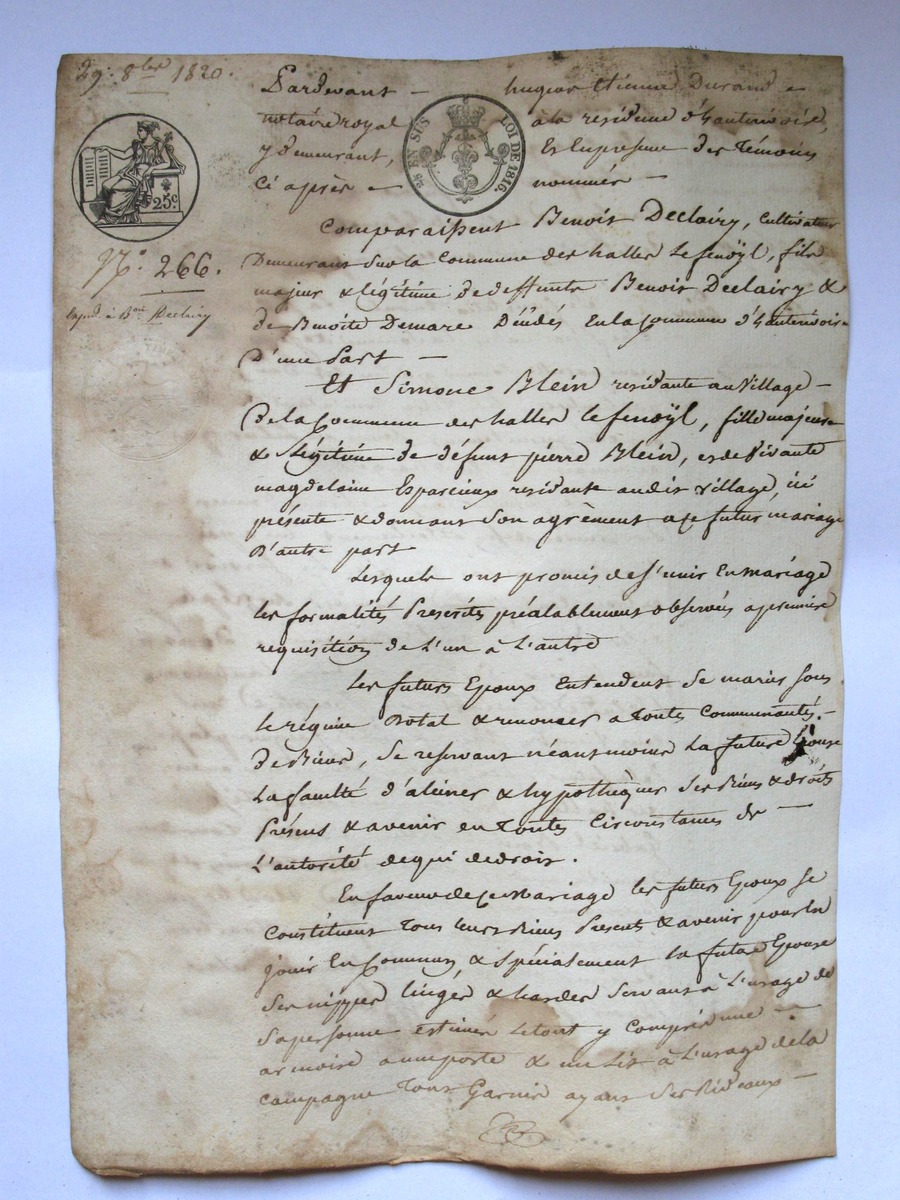 29. 8bre 1820.
Pardevant — hugues Etienne Durand
notaire royal à la residence d'hauterivoire,
y demeurant, Et En presence des Témoins
ci après nommés —
25c
28 EN SUS LOI DE 1816.
N° 266.
Expd. à Ben Declairy
TIMB
Comparaissent Benoit Declairy, Cultivateur
Demeurant Sur la Commune des halles Le fenoÿl, fils
majeur & légitime de deffunts Benoit Declairy &
de Benoite Demare Décédés En la Commune d'hauterivoire
D'une Part —
Et Simone Blein residante au Village —
De la Commune des halles le fenoÿl, fille majeure
& légitime de défunt pierre Blein, et de Vivante
magdelaine Esparcieux residante audit Village, ici
présente & donnant Son agrément a Ce futur mariage
D'autre part
Lesquels ont promis de S'unir En mariage
les formalités Prescrites préalablement observées a premiere
requisition de L'un à L'autre
Les futurs Epoux Entendent Se marier Sous
le régime Dotal & renoncer a toutes Communautés —
de Biens, Se reservant néantmoins La future Epouse
La faculté d'aleiner & hypothèquer Ses Biens & droits
Présens & avenir en Toutes Circonstances de —
L'autorité de qui de droit.
En faveur de Ce Mariage les futurs Epoux Se
Constituent Tous leurs Biens Présents & avenir pour les
jouir En Commun, & Spécialement la future Epouse
Ses nippes linges & hardes Servant à L'usage de
Sa personne estimés le tout y Compris une —
armoire a une porte & un Lit à L'usage de la
Campagne Tout Garnis ayant Ses Rideaux —